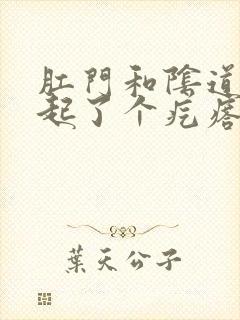 肛門和陰道
起了个疙瘩
葉天公子